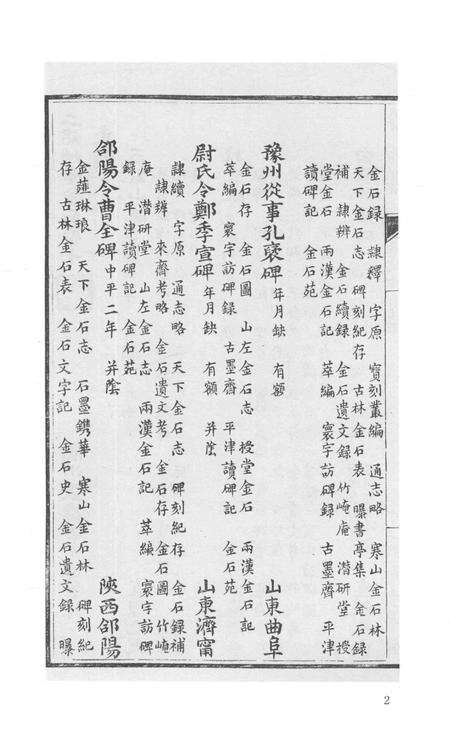 金石錄　隸釋　字原　寶刻叢編　通志略　寒山金石林
天下金石志　碑刻紀存　古林金石表　曝書亭集　金石錄
補　隸辨　金石續錄　金石遺文錄　竹崦庵　潛研堂　授
堂金石　兩漢金石記　萃編　寰宇訪碑錄　古墨齋　平津
讀碑記　金石苑
豫州從事孔褒碑　年月缺　有額　山東曲阜
金石存　金石圖　山左金石志　授堂金石　兩漢金石記
萃編　寰宇訪碑錄　古墨齋　平津讀碑記　金石苑
尉氏令鄭季宣碑　年月缺　有額　并陰　山東濟甯
隸續　字原　通志略　天下金石志　碑刻紀存　金石錄補
隸辨　來齋考略　金石遺文考　金石存　金石圖　竹崦
庵　潛研堂　山左金石志　兩漢金石記　萃編　寰宇訪碑
錄　平津讀碑記　金石苑
郃陽令曹全碑　中平二年　并陰　陝西郃陽
金薤琳琅　天下金石志　石墨鐫華　寒山金石林　碑刻紀
存　古林金石表　金石文字記　金石史　金石遺文錄　曝
2